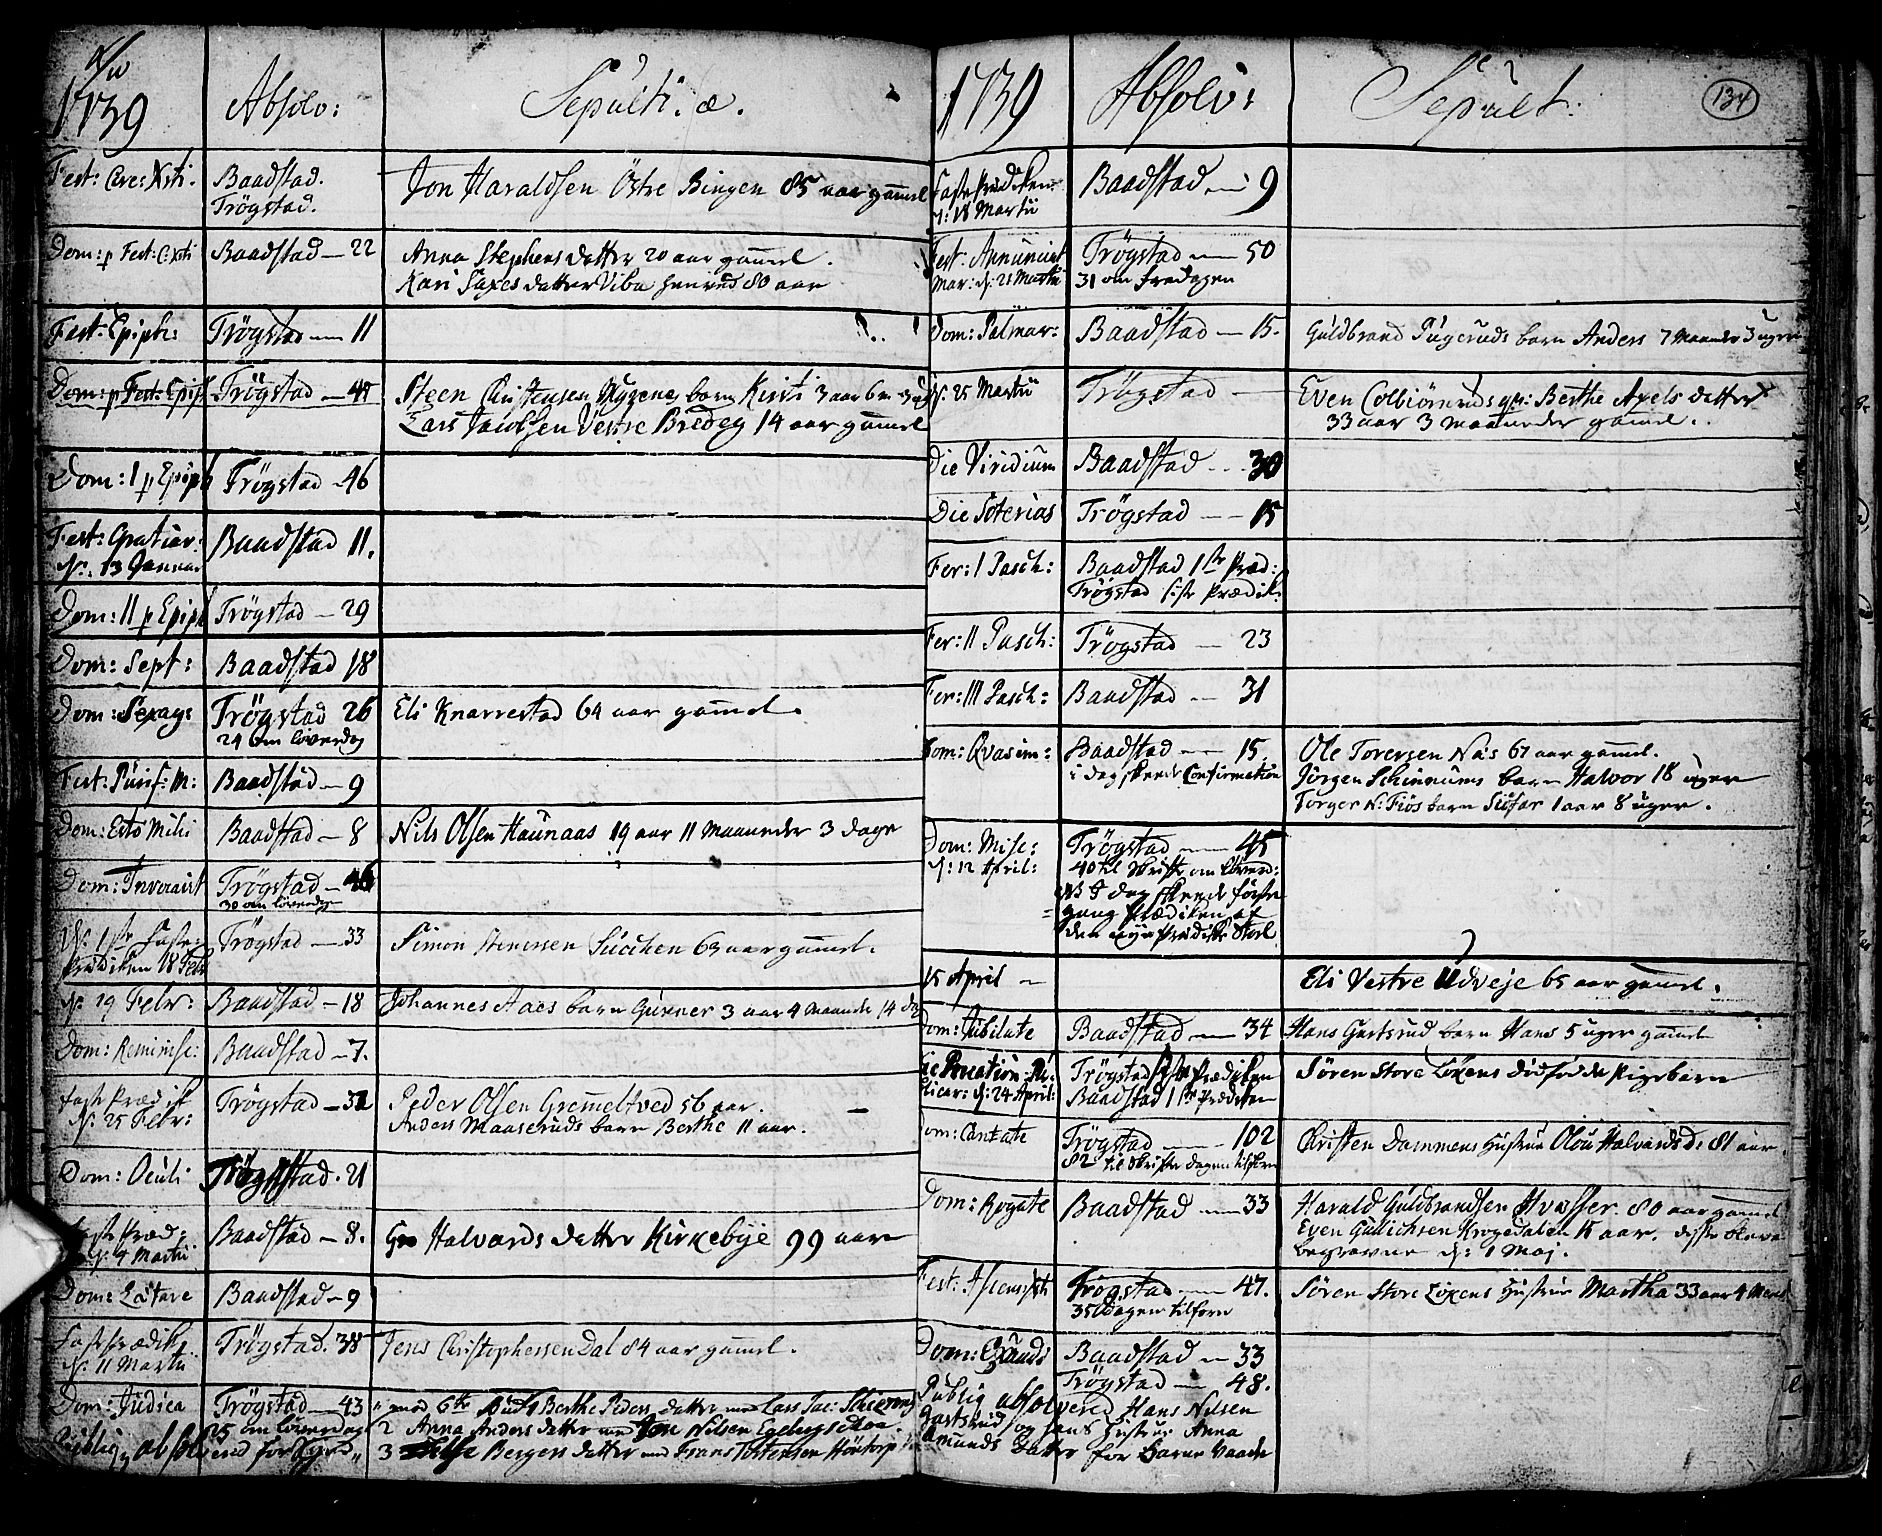 1739
Absolv:
Sepulti. æ.
Fest: Circ: Xsti.
Baadstad.
Trögstad.
Jon Haraldsen Östre Bingen 85 aar gam̄el
Dom: p Fest: C: Xsti
Baadstad — 22
Anna Stephensdatter 20 aar gam̄el.
Kari Saxesdatter Viba henved 80 aar
Fest: Epiph:
Trögstad — 11
Dom: p Fest: Epiph
Trögstad — 48
Steen Christensen barn Kirsti 3 aar 6 m 3
Lars Jacobsen Vestre Bredeg 14 aar gam̄el
Dom: I p Epiph
Trögstad — 46
Fest: Gratiar:
d: 13 Januar
Baadstad 11.
Dom: II p Epiph
Trögstad — 29
Dom: Sept:
Baadstad 18
Dom: Sexag:
Trögstad 26
24 om löverdag
Eli Knarrestad 64 aar gam̄el.
Fest: Purif: M:
Baadstad — 9
Dom: Esto Mihi
Baadstad — 8
Nils Olsen Haunaas 19 aar 11 Maaneder 3 dage
Dom: Invocavit
Trögstad — 46
30 om löverdag
d: 1ste Faste:
Prædiken 18 Febr
Trögstad — 33
Simon Stenersen Succhen 63 aar gam̄el.
d: 19 Febr:
Baadstad — 18
Johannes Aaes barn Gunner 3 aar 4 Maaneder 14 d
Dom: Reminisc:
Baadstad — 7.
Faste Prædik
d: 25 Febr:
Trögstad — 32
Peder Olsen Gremmeltved 56 aar.
Anders Maaseruds barn Berthe 11 aar.
Dom: Oculi
Trögstad. 21
Faste Præd:
d: 4 Martii
Baadstad — 8.
Halvordsdatter Kirkebye 99 aar
Dom: Lætare
Baadstad — 9
Faste Prædik.
d: 11 Martii
Trögstad. 38
Jens Christophersen Dal 84 aar gam̄el.
Dom: Judica
Trögstad — 43
25 om löverdag
mod 6te Berthe Pedersdatter med Lars Jac:
2 Anna Andersdatter med Nilsen
Publiq absolverid for
3 Bergersdatter med Frans Tostensen
1739
Absolv:
Sepult:
134
Faste Prædiken
d: 18 Martii
Baadstad — 9
Fest: Annunciat
Mar: d: 21 Martii
Trögstad — 50
31 om fredagen
Dom: Palmar:
Baadstad — 15.
Guldbrand barn Anders 7 Maaneder 3 uger
d: 25 Martii
Trögstad —
Even Colbiörnruds qv: Berthe Axels datter
33 aar 3 maaneder gam̄el.
Die Viridium
Baadstad — 30
Die Soterias
Trögstad — 15
Fer: I Pasch:
Baadstad 1ste Præd:
Trögstad siste Prædik:
Fer: II Pasch:
Trögstad — 23
Fer: III Pasch:
Baadstad — 31
Dom: Qvasim:
Baadstad — 15.
i dag skeede Confirmation
Ole Torersen Näs 67 aar gam̄el.
Jörgen Schinnums barn Halvor 18 uger
Torger N: Fiös barn Siöfar 1 aar 8 uger.
Dom: Mise:
d: 12 April:
Trögstad — 45
40 til Skrifte om Löverd:
NB I dag skeede förste
gang Prædiken af
den nye Prædike Stoel
15 April —
Eli Vestre Udveje 65 aar gam̄el.
Dom: Jubilate
Baadstad — 34
Hans Gartsrud barn Hans 5 uger gam̄el
d: 24 April:
Trögstad siste Prædiken
Baadstad 1ste Prædiken
Sören Store Löxens dödfödde Pigebarn
Dom: Cantate
Trögstad — 102
82 til Skrifte dagen tilforn
Christen Dammens Hustrue Olou Halvordsd: 81 aar.
Dom: Rogate
Baadstad — 33
Harald Guldbrandsen Hvasser 80 aar gam̄el
Even Gulichsen Krogedalen 15 aar. disse bleve
begravne d: 1 Maj.
Fest: Ascens: Xsti
Trögstad — 47.
35 dagen tilforn
Sören Store Löxens Hustrue Martha 33 aar 4 Maned
Dom: Exaudi
Baadstad — 33
Trögstad — 48.
Publiq absolvered Hans Nilsen
Gartsrud og hans Hustrue Anna
Amunds Datter for